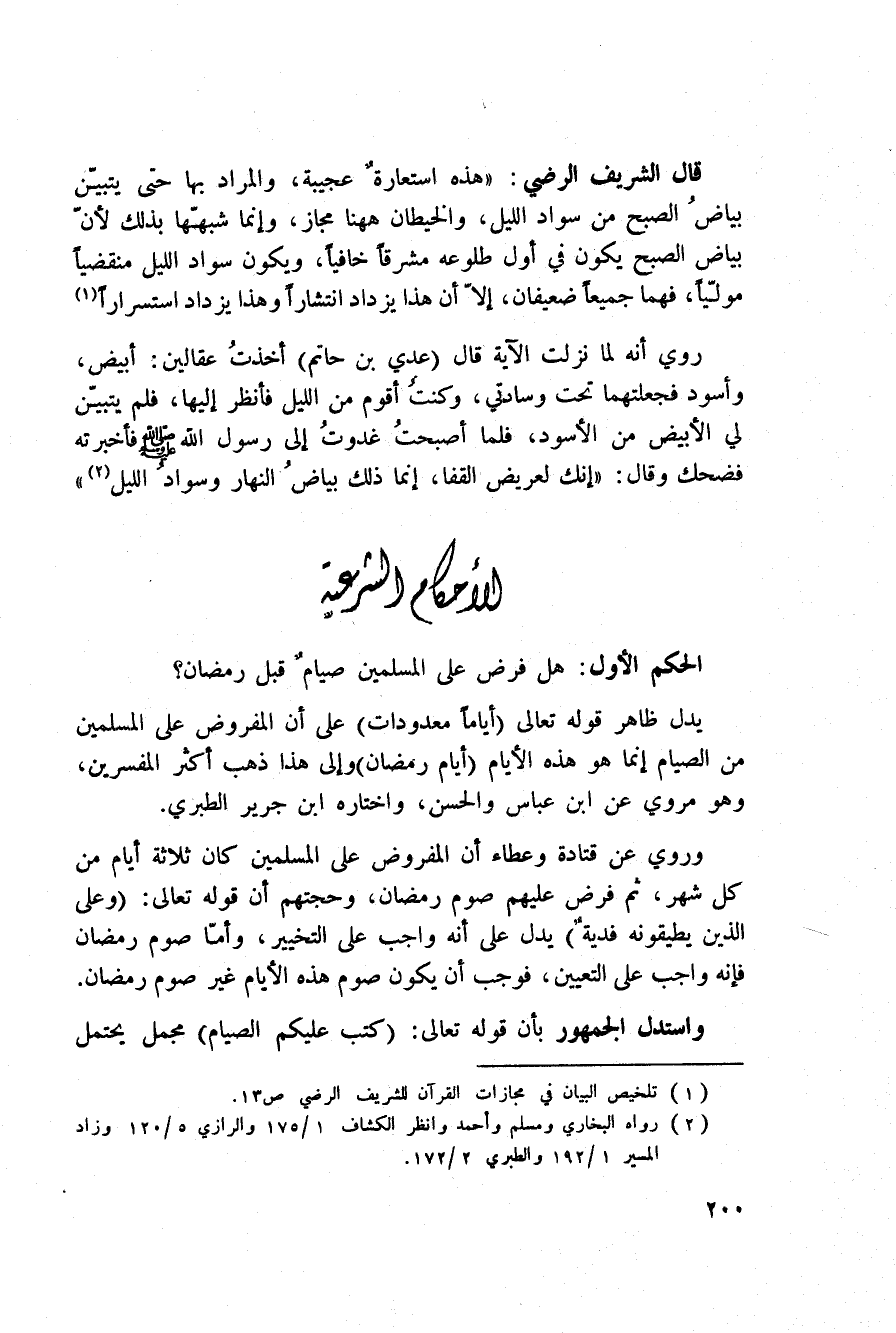 قال الشريف الرضي: «هذه استعارةٌ عجيبة، والمراد بها حتى يتبيّن
بياضُ الصبح من سواد الليل، والخيطان ههنا مجاز، وإنما شبههّا بذلك لأنّ
بياض الصبح يكون في أول طلوعه مشرقاً خافياً، ويكون سواد الليل منقضياً
مولّياً، فهما جميعاً ضعيفان، إلاّ أن هذا يزداد انتشاراً وهذا يزداد استسراراً(١)
روي أنه لما نزلت الآية قال (عدي بن حاتم) أخذتُ عقالين: أبيض،
وأسود فجعلتهما تحت وسادتي، وكنتُ أقوم من الليل فأنظر إليها، فلم يتبيّن
لي الأبيض من الأسود، فلما أصبحتُ غدوتُ إلى رسول الله ﷺ فأخبرته
فضحك وقال: «إنك لعريض القفا، إنما ذلك بياضُ النهار وسوادُ الليل(٢)»
الأحكام الشرعية
الحكم الأول: هل فرض على المسلمين صيامٌ قبل رمضان؟
يدل ظاهر قوله تعالى (أياماً معدودات) على أن المفروض على المسلمين
من الصيام إنما هو هذه الأيام (أيام رمضان)وإلى هذا ذهب أكثر المفسرين،
وهو مروي عن ابن عباس والحسن، واختاره ابن جرير الطبري.
وروي عن قتادة وعطاء أن المفروض على المسلمين كان ثلاثة أيام من
كل شهر، ثم فرض عليهم صوم رمضان، وحجتهم أن قوله تعالى: (وعلى
الذين يطيقونه فديةٌ) يدل على أنه واجب على التخيير، وأمّا صوم رمضان
فإنه واجب على التعيين، فوجب أن يكون صوم هذه الأيام غير صوم رمضان.
واستدل الجمهور بأن قوله تعالى: (كتب عليكم الصيام) مجمل يحتمل
(١) تلخيص البيان في مجازات القرآن للشريف الرضي ص١٣.
(٢) رواه البخاري ومسلم وأحمد وانظر الكشاف ١/١٧٥ والرازي ٥/١٢٠ وزاد
المسير ١/١٩٢ والطبري ٢/١٧٢.
٢٠٠